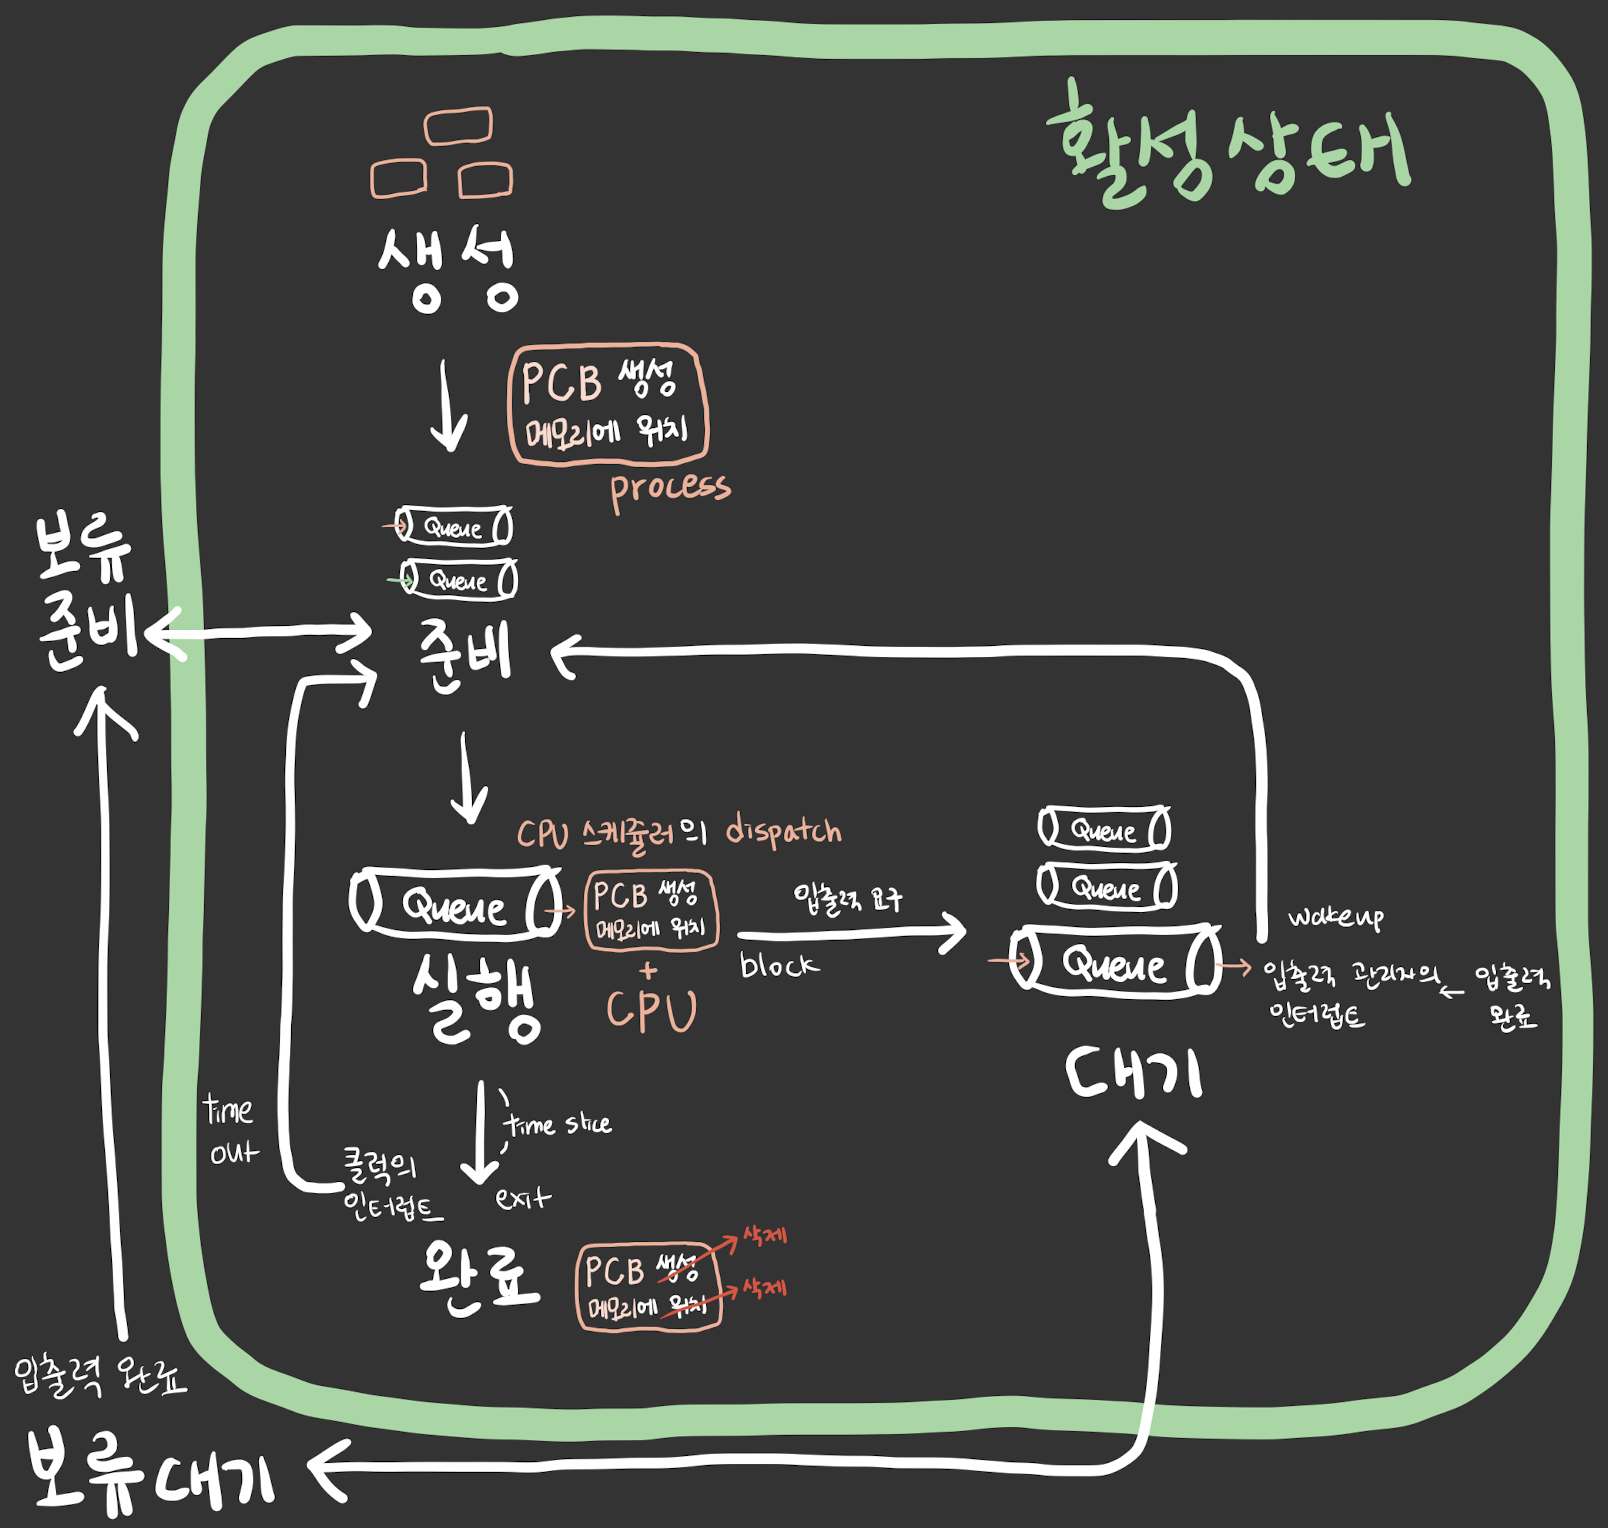 활성상태
생성
PCB 생성
메모리에 위치
process
Queue
Queue
보류
준비
준비
CPU 스케쥴러의 dispatch
Queue
PCB 생성
메모리에 위치
+
CPU
실행
입출력 요구
block
Queue
Queue
Queue
wakeup
입출력 관리자의
인터럽트
입출력
완료
대기
time
out
클럭의
인터럽트
time slice
exit
완료
PCB 생성
삭제
메모리에 위치
삭제
입출력 완료
보류대기